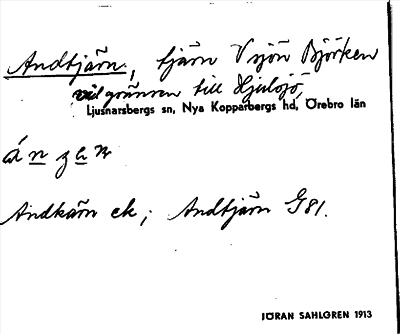 Andtjärn, tjärn V sjön Björken
vid gränsen till Hjulsjö,
Ljusnarsbergs sn, Nya Kopparbergs hd, Örebro län
Andkärn ek; Andtjärn G 81.
JÖRAN SAHLGREN 1913